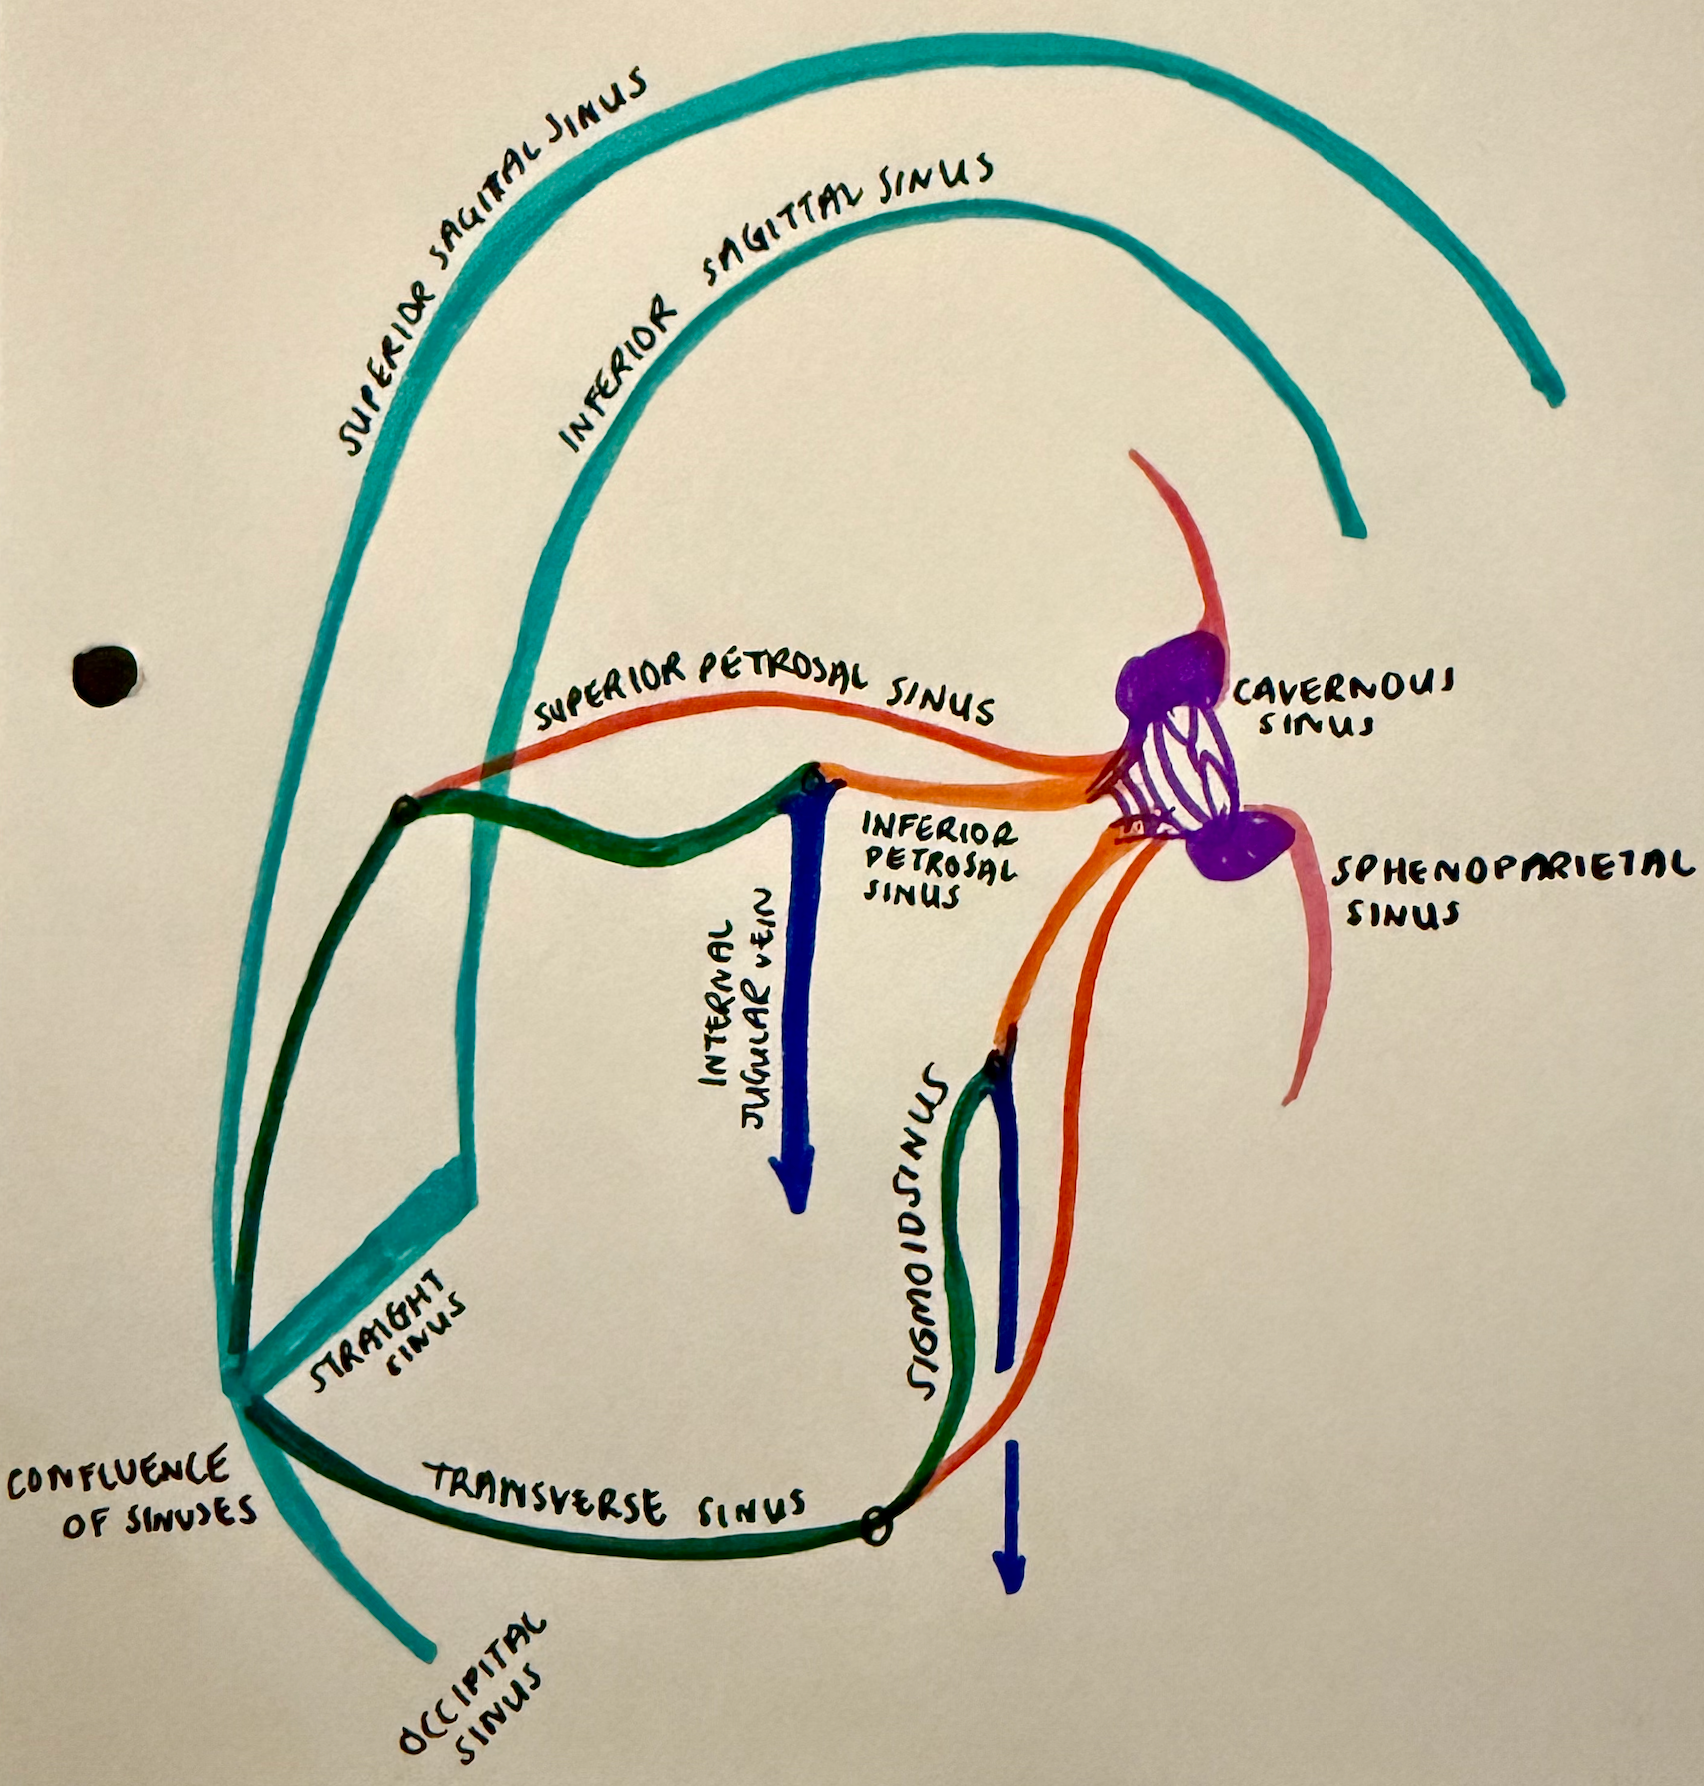 SUPERIOR SAGITTAL SINUS
INFERIOR SAGITTAL SINUS
SUPERIOR PETROSAL SINUS
CAVERNOUS
SINUS
INFERIOR
PETROSAL
SINUS
SPHENOPARIETAL
SINUS
INTERNAL
JUGULAR VEIN
SIGMOID SINUS
STRAIGHT
SINUS
CONFLUENCE
OF SINUSES
TRANSVERSE SINUS
OCCIPITAL
SINUS